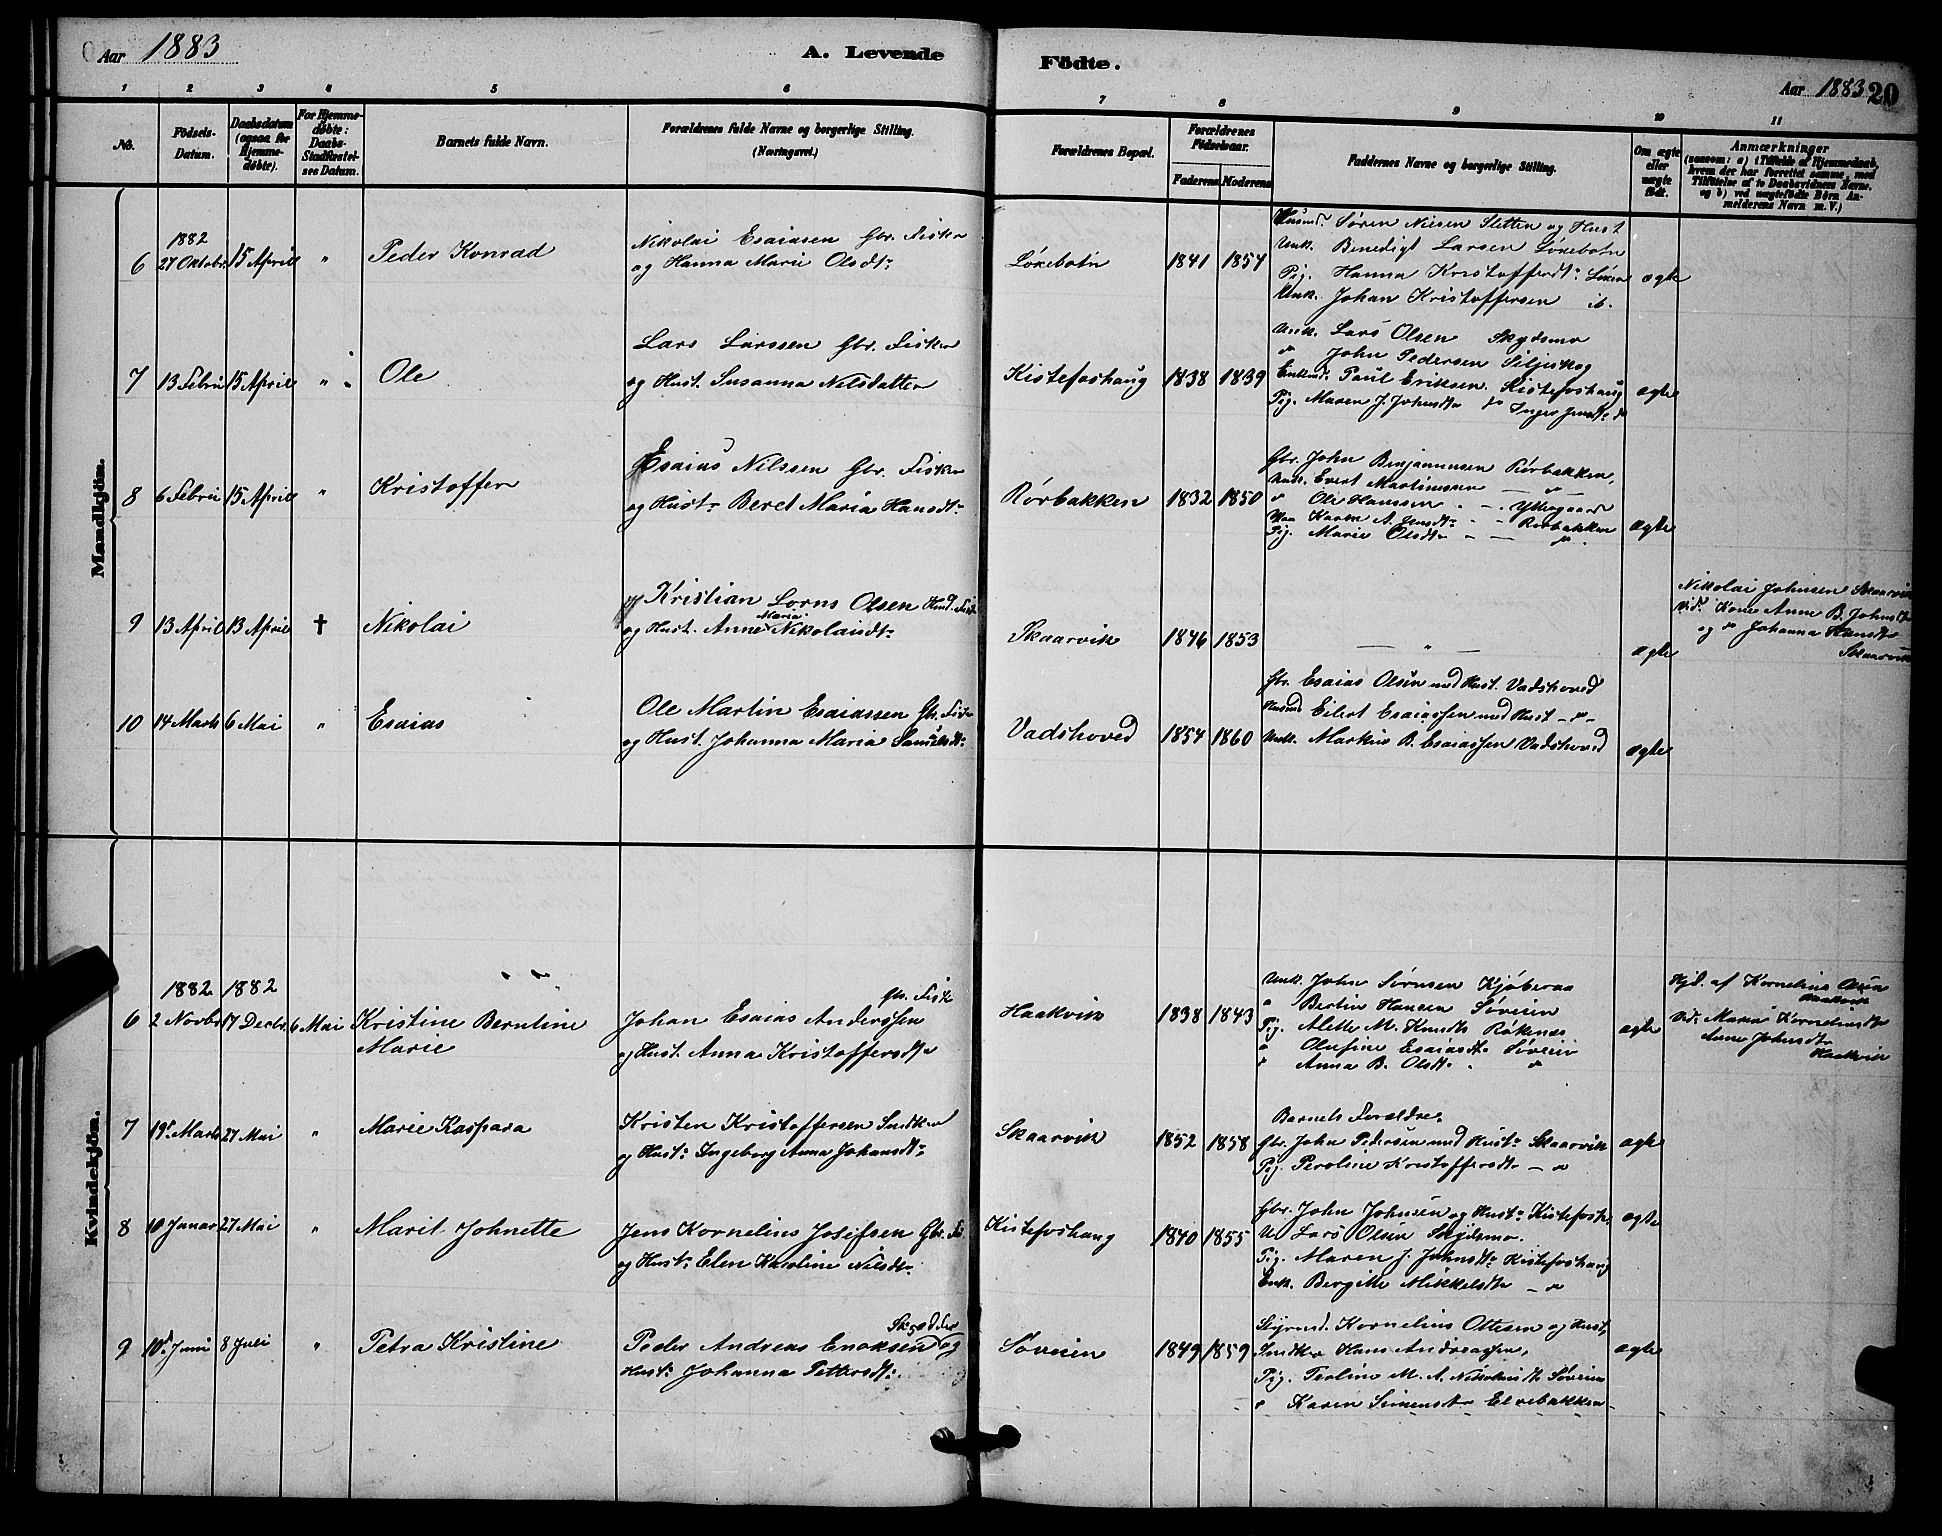 Aar 1883
A. Levende
Födte.
Aar 1883
20
1 2 3 4 5 6 7 8 9 10 11
No.
Födsels-Datum.
Daabsdatum (ogsaa for Hjemmedøbte).
For Hjemmedøbte: Daabs-Stadfæstelses Datum.
Barnets fulde Navn.
Forældrenes fulde Navne og borgerlige Stilling.
(Næringsvei.)
Forældrenes Bopæl.
Forældrenes Födselsaar.
Faderens Moderens
Faddernes Navne og borgerlige Stilling.
Om ægte eller uægte født.
Anmærkninger
(saasom: a) i Tilfælde af Hjemmedaab, hvem der har forrettet samme, med Tilføielse af to Daabsvidners Navne, og b) ved uægtefødte Børn Anmelderens Navn m. V.)
Mandkjön.
1882
6 27 Oktobr 15 April " Peder Konrad
Nikolai Esaiasen Gbr. Fisker
og Hanna Marie Olsdtr
Løkebotn 1841 1854
Husmd. Søren Nilsen Sletten og Hust
Unk. Benedigt Larsen Løkebotn
Pig. Hanna Kristoffersdtr Løken
Unk. Johan Kristoffersen ib.
ægte
7 13 Febru 15 April " Ole
Lars Larssen Gbr. Fisker
og Hust. Susanna Nilsdatter
Kistefoshaug 1838 1839
Unk. Lars Olsen Skydsmo
" John Pedersen Siljuskog
Enkmd. Paul Eriksen Kistefoshaug
Pig. Maren J. Johnsdtr do Inger Jensdtr do
ægte
8 6 Febru 15 April " Kristoffer
Esaias Nilssen Gbr. Fisker
og Hustr Beret Maria Hansdtr
Rørbakken 1832 1850
Gbr. John Benjaminsen Rørbakken,
Unk. Evert Martinussen — " —
" Ole Hanssen - — Yttregaard
Karen A. Jensdtr - — Rørbakken
Pig. Marie Olsdtr - — "
ægte
9 13 April 13 April † Nikolai
Kristian Lorns Olsen Husmd. Fisk
og Hust. Anne Maria Nikolaisdtr
Skaarvik 1846 1853 — " —
ægte
Nikolai Johnsen Skaarvik
vid. Kone Anne B. Johnsdtr
og do Johanna Hansdtr
Skaarvik
10 14 Marts 6 Mai " Esaias
Ole Martin Esaiassen Gbr. Fisker
og Hust. Johanna Maria Samuelsdtr
Vadshoved 1854 1860
Gbr. Esaias Olsen med Hust. Vadshoved
Husmd Eilert Esaiassen med Hust - " -
Unk. Markus B. Esaiassen Vadshoved
ægte
Kvindekjön.
1882 1882
6 2 Novbr 17 Decbr 6 Mai Kristine Berntine
Marie
Gbr. Fisk
Johan Esaias Anderssen
og Hust. Anna Kristoffersdtr
Haakvik 1838 1843
Unk. John Sørnsen Kjøberaa
" Bertin Hansen Søveien
Pig. Alette M. Knudtr Røkenes
" Olufine Esaiasdtr Søveien
" Anna B. Olsdtr - "
ægte
Hjd. af Kornelius Olsen
Haakvik
Vid. Maria Korneliusdtr
Anne Johnsdtr
Haakvik
7 19 Marts 27 Mai " Marie Kaspara
Kristen Kristoffersen Snedker
og Hustr Ingeborg Anna Johansdtr
Skaarvik 1852 1858
Barnets Forældre.
Gbr. John Pedersen med Hustr Skaarvik
Pig. Peroline Kristoffersdtr — "
ægte
8 10 Januar 27 Mai " Marit Johnette
Jens Kornelius Josefsen Gbr. Fi.
og Hustr Elen Karoline Nilsdtr
Kistefoshaug 1840 1855
Gbr. John Johnsen og Hustr Kistefosh.
U Lars Olsen Skydsmo.
Pig. Maren J. Johnsdtr Kistefoshaug
Enk. Bergitte Mikkelsdtr — "
ægte
9 10 Juni 8 Juli " Petra Kristine
Skrædder
Peder Andreas Enoksen og
Hustr Johanna Pettersdtr
Søveien 1849 1859
Styrmd. Kornelius Ottesen og Hust,
Snedker Hans Andreassen,
Pig. Teoline M. A. Nikolaisdtr Søveien
" Karen Simensdtr Elvebakken
ægte